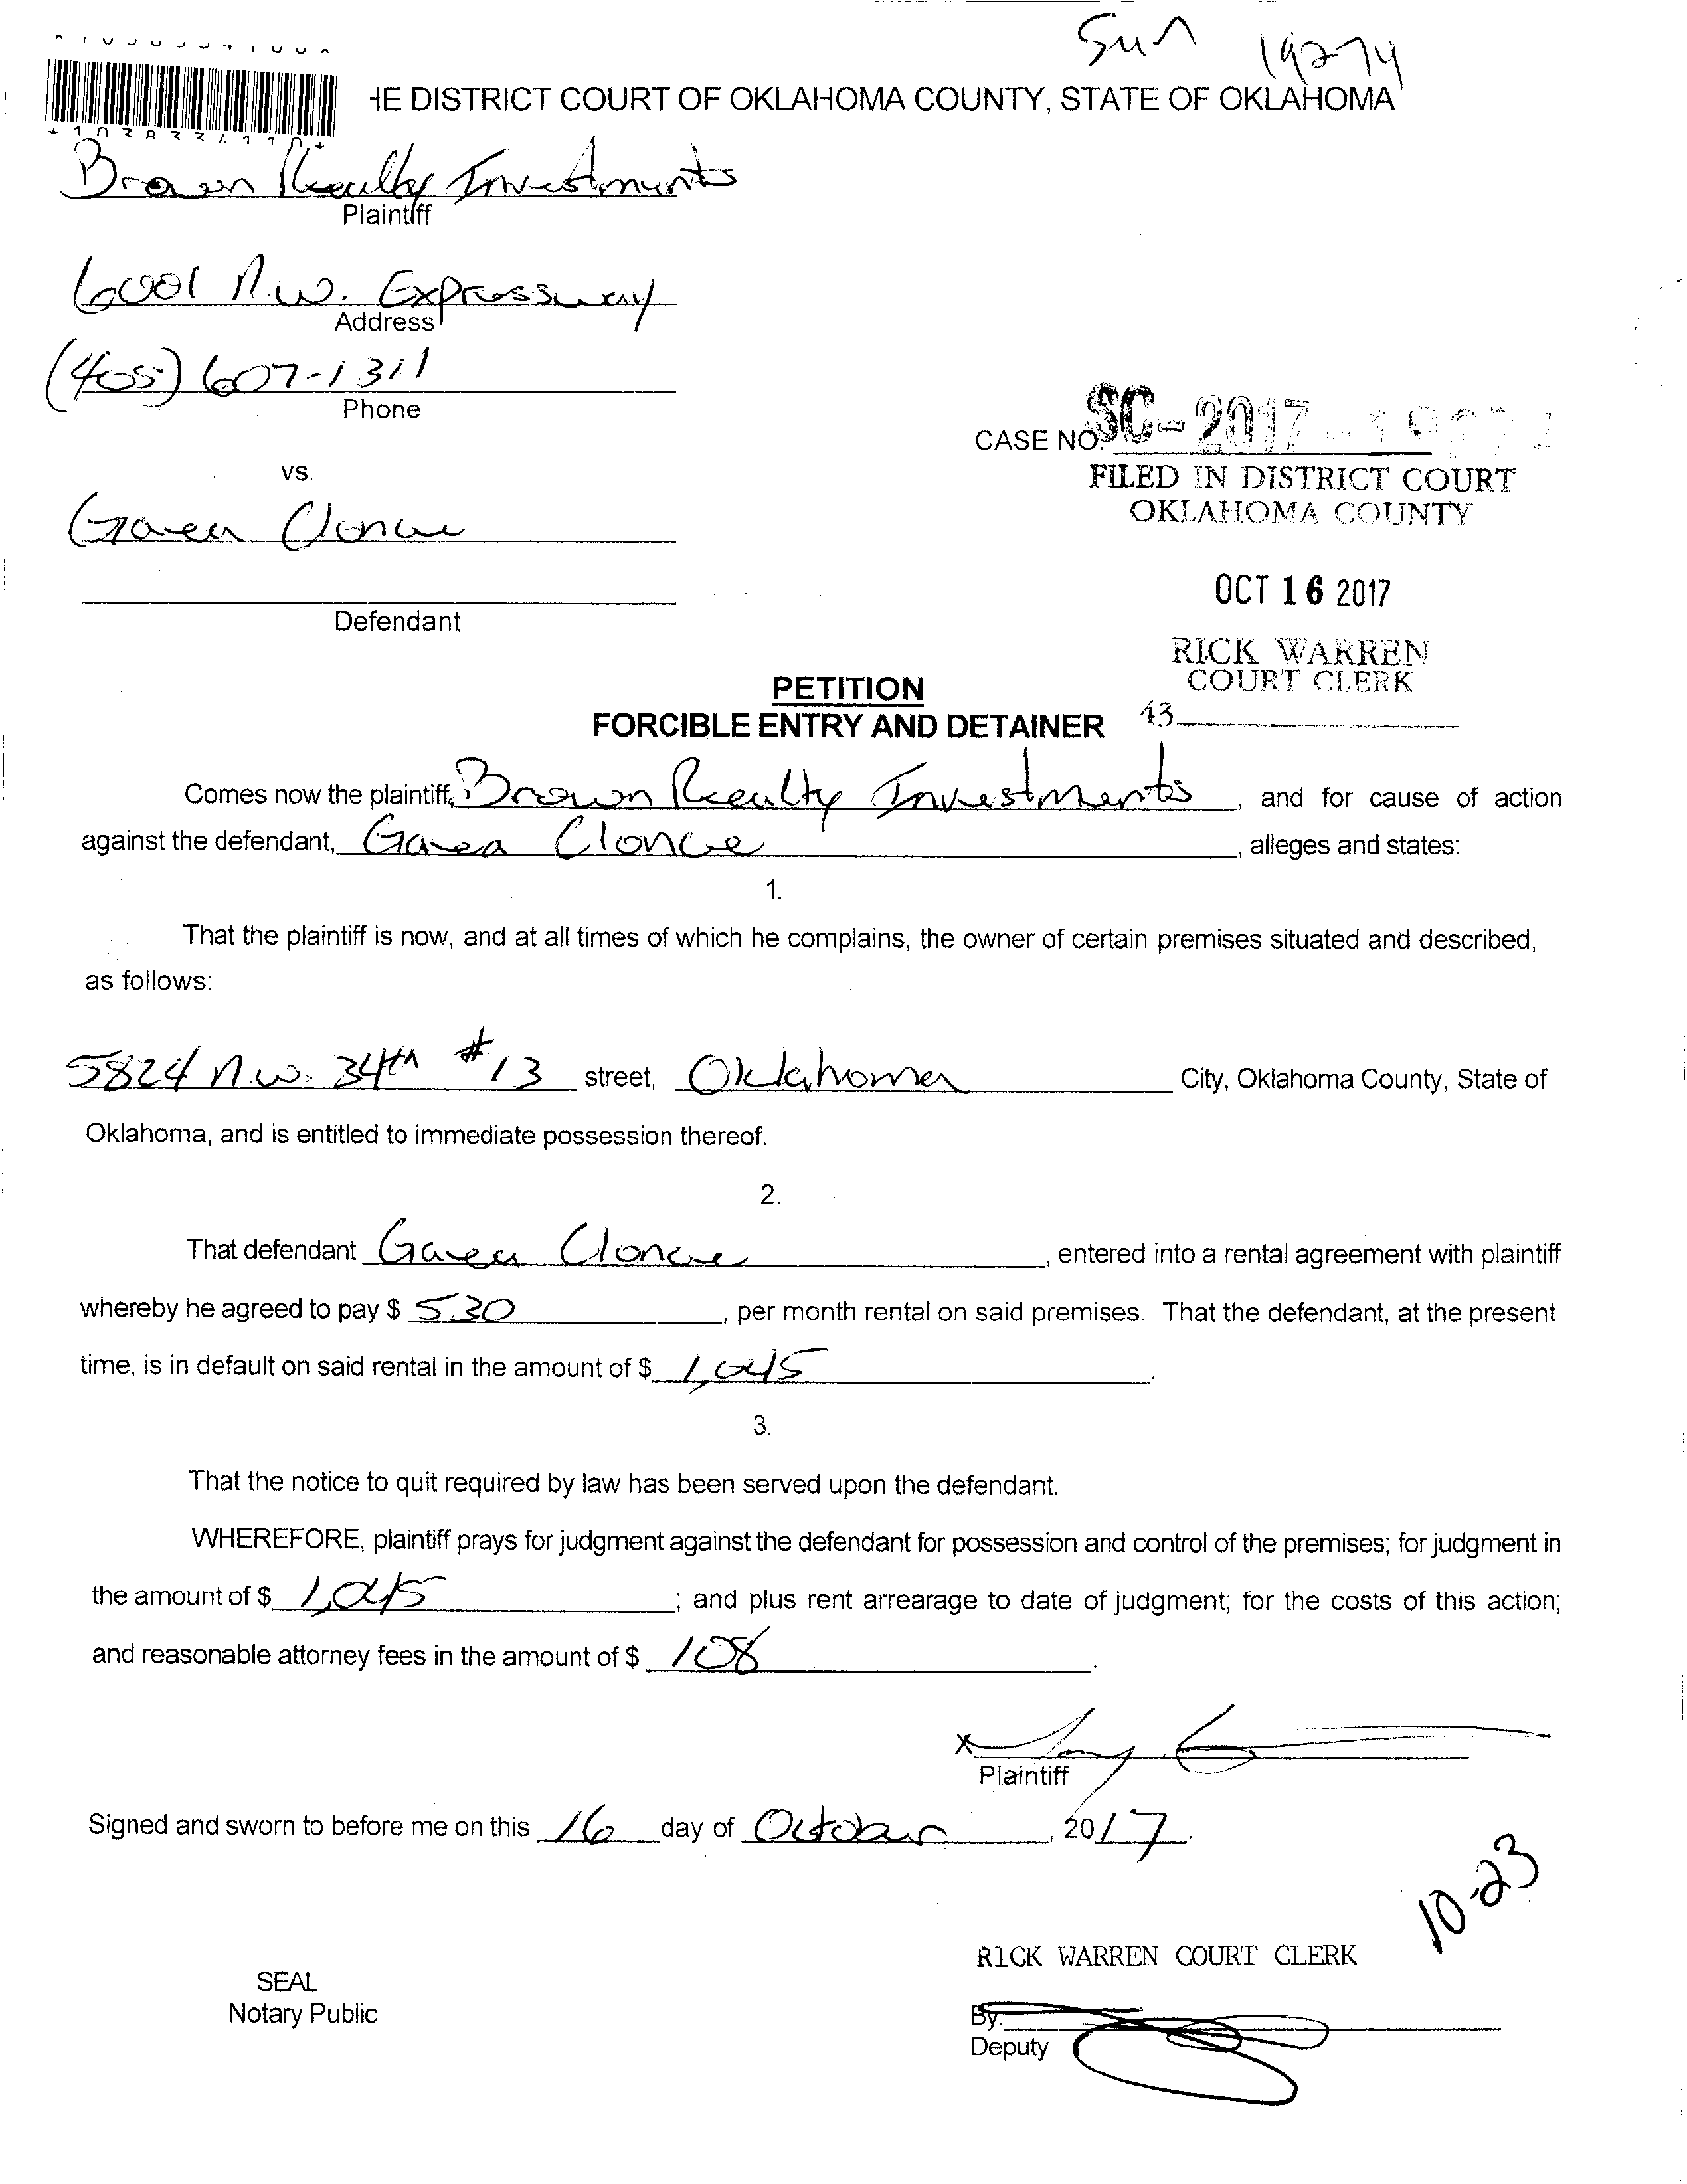 Sun 19274
HE DISTRICT COURT OF OKLAHOMA COUNTY, STATE OF OKLAHOMA
Brown Realty Investments
Plaintiff
6001 N.W. Expressway
Address
(405) 607-1311
Phone
CASE NO. SC-2017-
FILED IN DISTRICT COURT
OKLAHOMA COUNTY
vs.
OCT 16 2017
Defendant
RICK WARREN
COURT CLERK
43
PETITION
FORCIBLE ENTRY AND DETAINER
Comes now the plaintiff, Brown Realty Investments, and for cause of action
against the defendant, Clonce, alleges and states:
1.
That the plaintiff is now, and at all times of which he complains, the owner of certain premises situated and described,
as follows:
5824 N.W. 34th #13 street, Oklahoma City, Oklahoma County, State of
Oklahoma, and is entitled to immediate possession thereof.
2.
That defendant Clonce, entered into a rental agreement with plaintiff
whereby he agreed to pay $ 530, per month rental on said premises. That the defendant, at the present
time, is in default on said rental in the amount of $ 1,045.
3.
That the notice to quit required by law has been served upon the defendant.
WHEREFORE, plaintiff prays for judgment against the defendant for possession and control of the premises; for judgment in
the amount of $ 1,045; and plus rent arrearage to date of judgment; for the costs of this action;
and reasonable attorney fees in the amount of $ 108.
x
Plaintiff
Signed and sworn to before me on this 16 day of October, 2017.
10-23
RICK WARREN COURT CLERK
SEAL
Notary Public
By:
Deputy